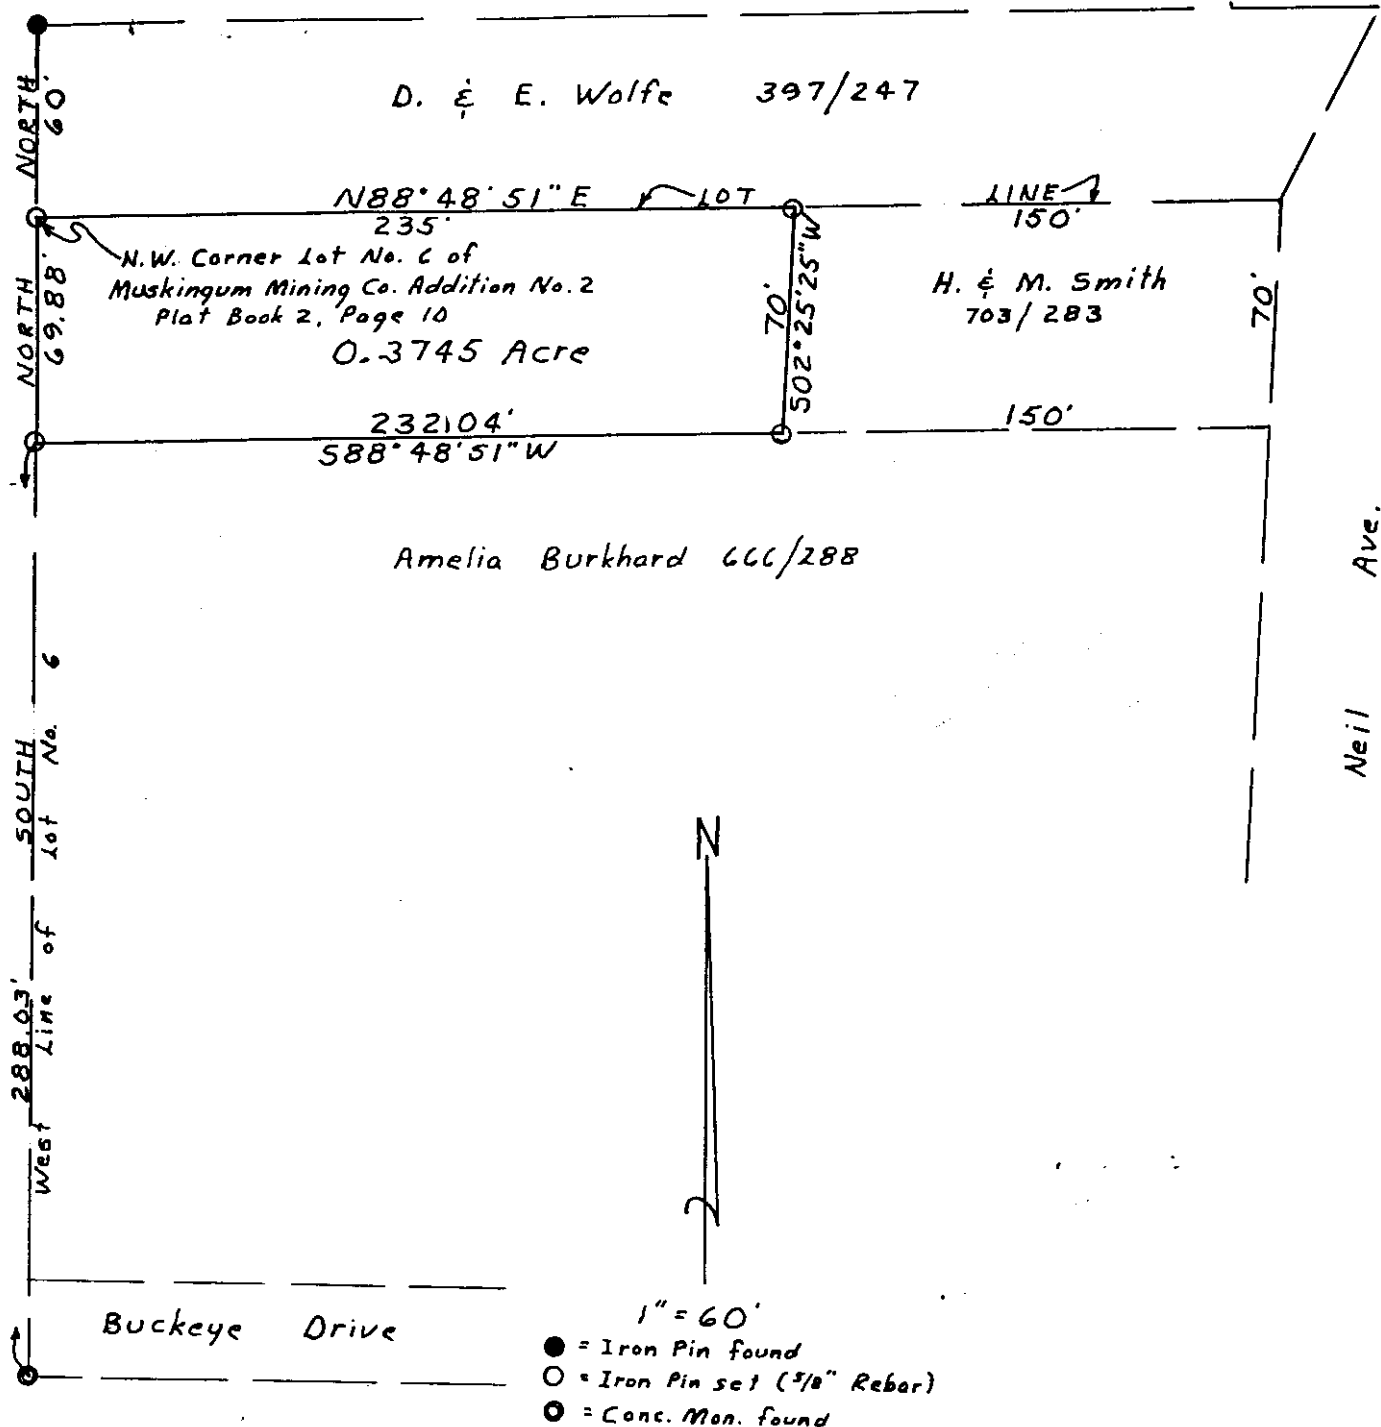 NORTH
60'
D. & E. Wolfe 397/247
N88°48'51"E
LOT
LINE
235'
150'
N.W. Corner Lot No. 6 of
Muskingum Mining Co. Addition No. 2
Plat Book 2, Page 10
0.3745 Acre
NORTH
69.88'
70'
S02°25'25"W
H. & M. Smith
703/283
70'
232.04'
S88°48'51"W
150'
Amelia Burkhard 666/288
Neil Ave.
288.03' SOUTH
West Line of Lot No. 6
N
Buckeye Drive
1" = 60'
= Iron Pin found
= Iron Pin set (5/8" Rebar)
= Conc. Mon. found